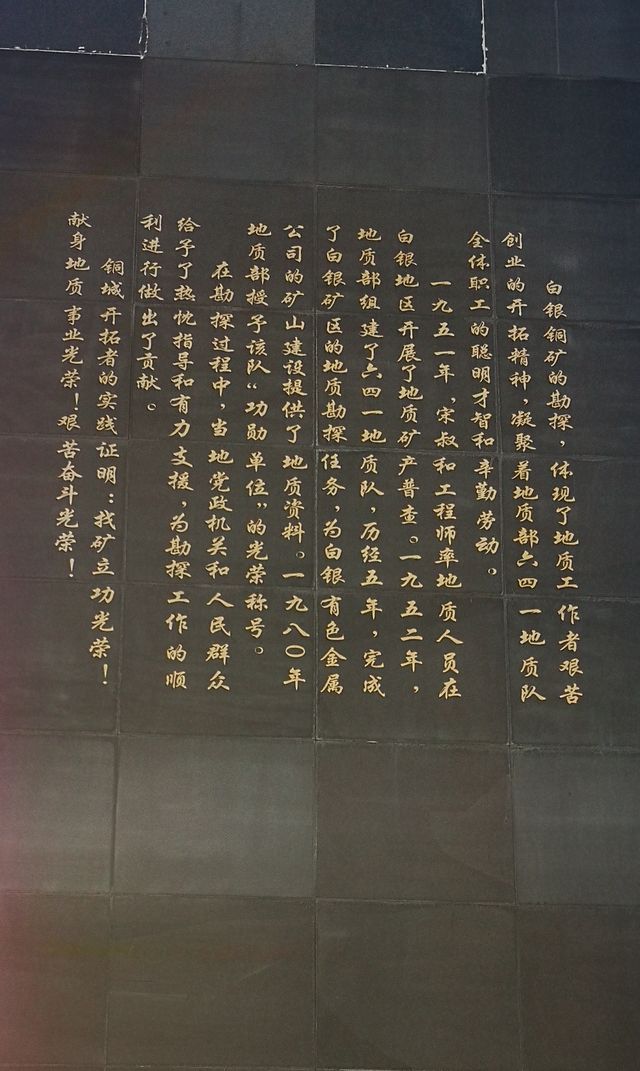 白银铜矿的勘探，体现了地质工作者艰苦
创业的开拓精神，凝聚着地质部六四一地质队
全体职工的聪明才智和辛勤劳动。
一九五一年，宋叔和工程师率地质人员在
白银地区开展了地质矿产普查。一九五二年，
地质部组建了六四一地质队，历经五年，完成
了白银矿区的地质勘探任务，为白银有色金属
公司的矿山建设提供了地质资料。一九八〇年
地质部授予该队“功勋单位”的光荣称号。
在勘探过程中，当地党政机关和人民群众
给予了热忱指导和有力支援，为勘探工作的顺
利进行做出了贡献。
铜城开拓者的实践证明：找矿立功光荣！
献身地质事业光荣！艰苦奋斗光荣！